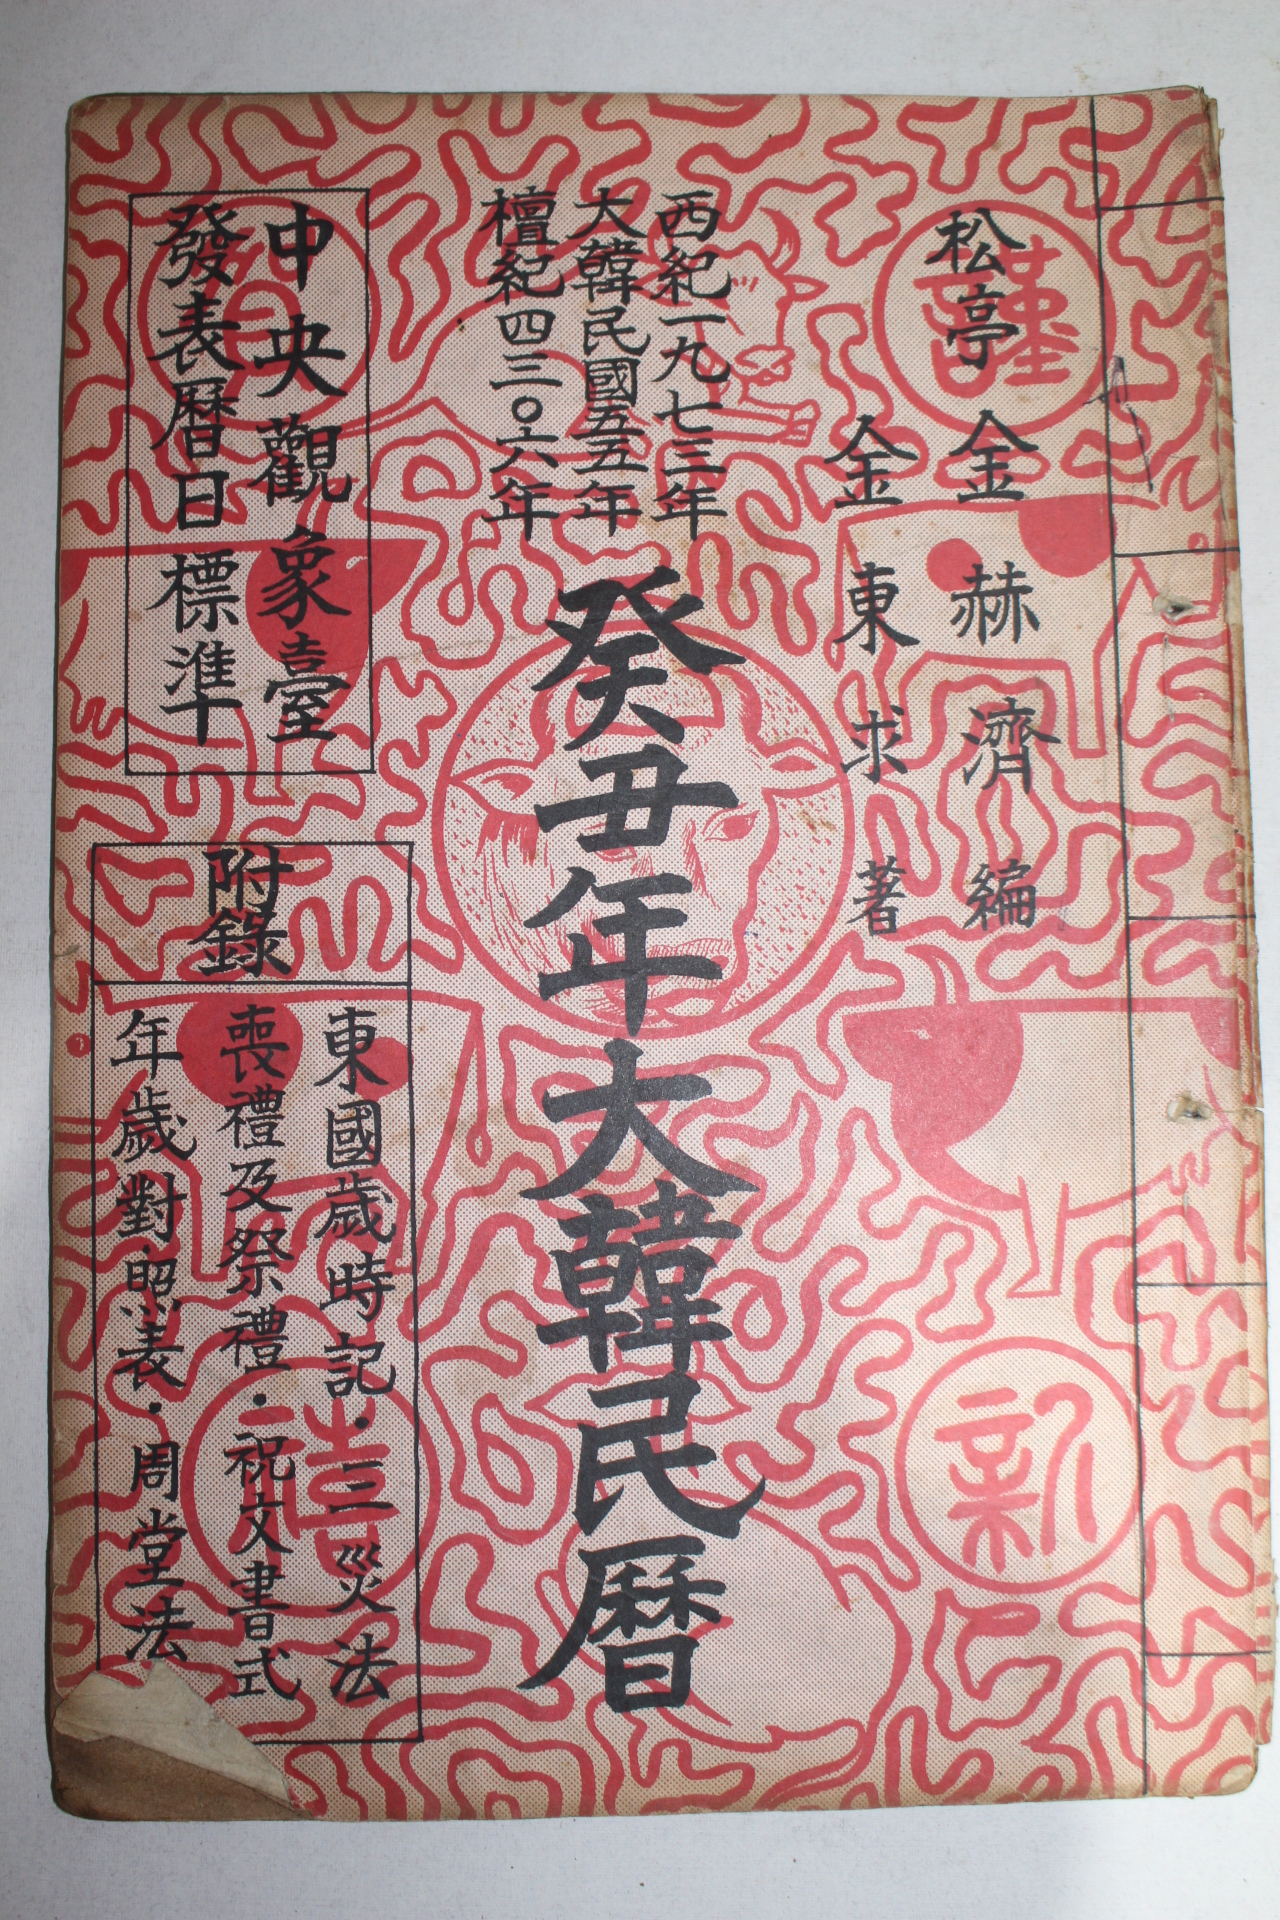 松亭 金赫濟 編
金東求 著
西紀一九七三年
大韓民國五五年
檀紀四三〇六年
癸丑年大韓民暦
中央觀象臺
發表曆日標準
附錄
東國歲時記·三災法
喪禮及祭禮·祝文書式
年歲對照表·周堂法
謹
賀
新
禧